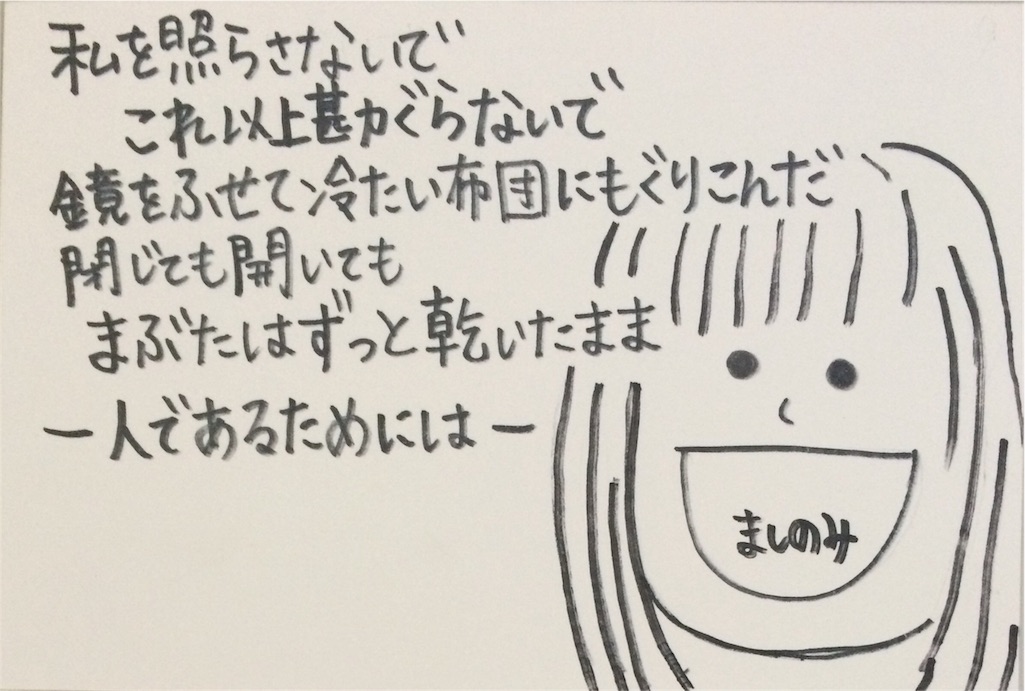 私を照らさないで
これ以上甚カぐらないで
鏡をふせて冷たい布団にもぐりこんだ
閉じても開いても
まぶたはずっと乾いたまま
ー人であるためにはー
ましのみ